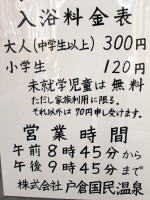 入浴料金表
大人(中学生以上) 300円
小学生 120円
未就学児童は 無料
ただし家族利用に限る。
それ以外は 70円申し受けます。
営業時間
午前8時45分から
午後9時45分まで
株式会社 戸倉国民温泉